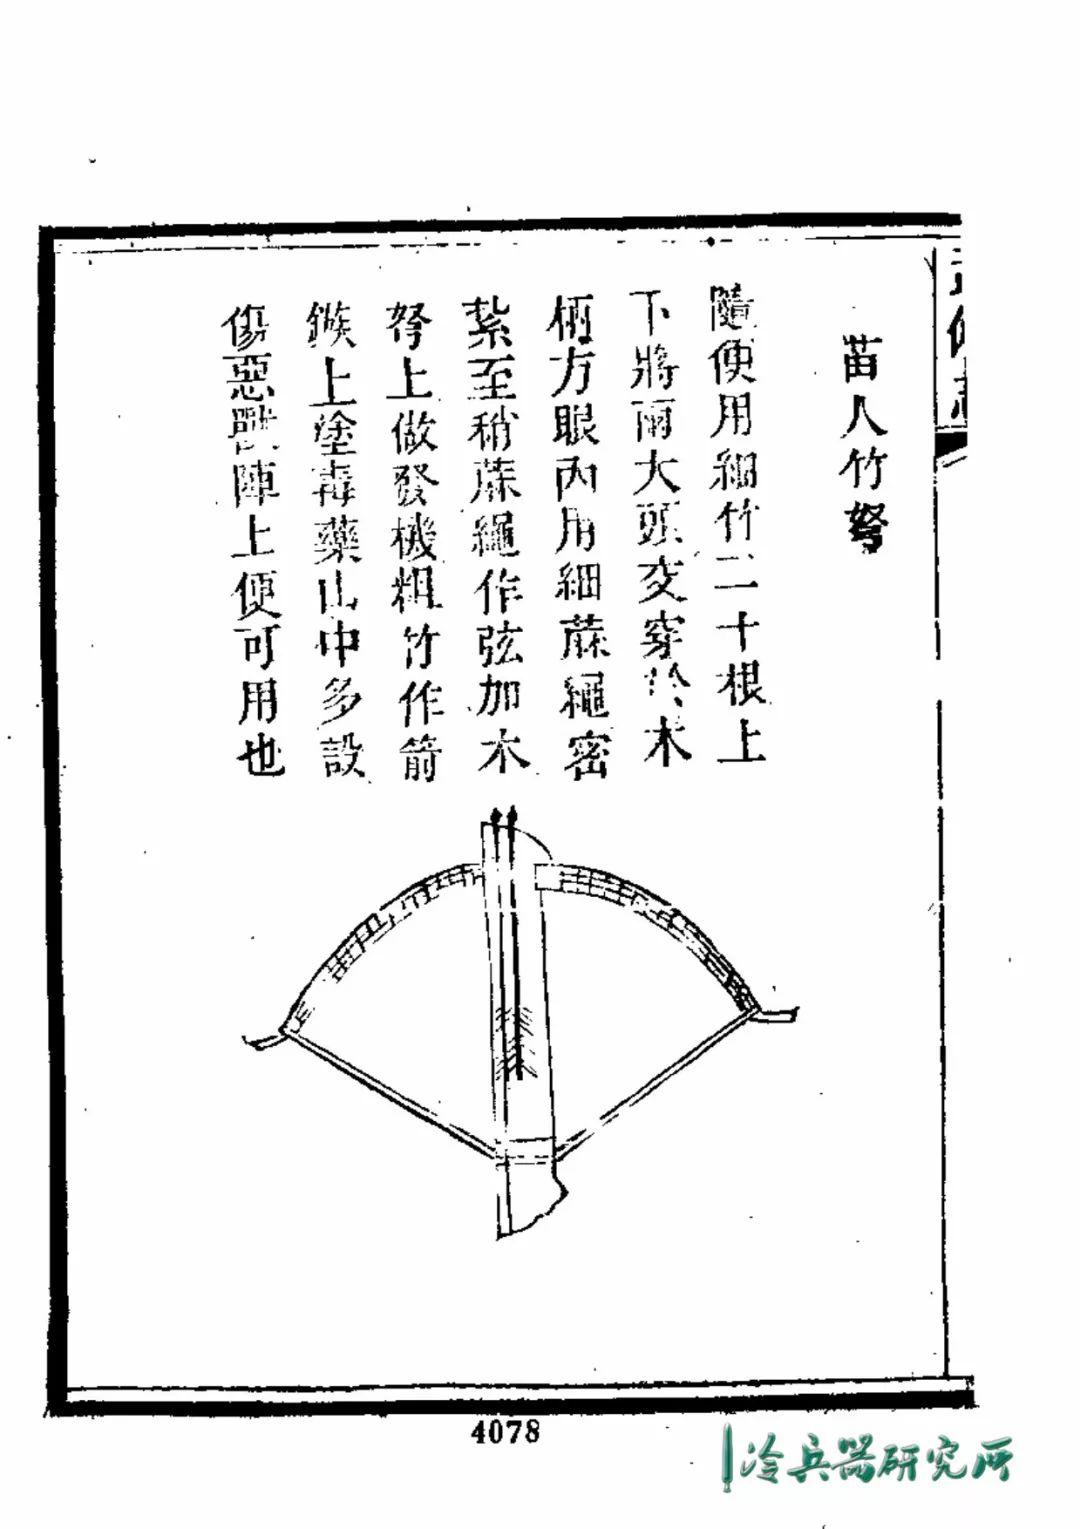 苗人竹弩
隨便用細竹二十根上
下將兩大頭交穿於木
柄方眼內用細蔴繩密
紮至稍蔴繩作弦加木
弩上做發機粗竹作箭
鏃上塗毒藥山中多設
傷惡獸陣上便可用也
4078
冷兵器研究所